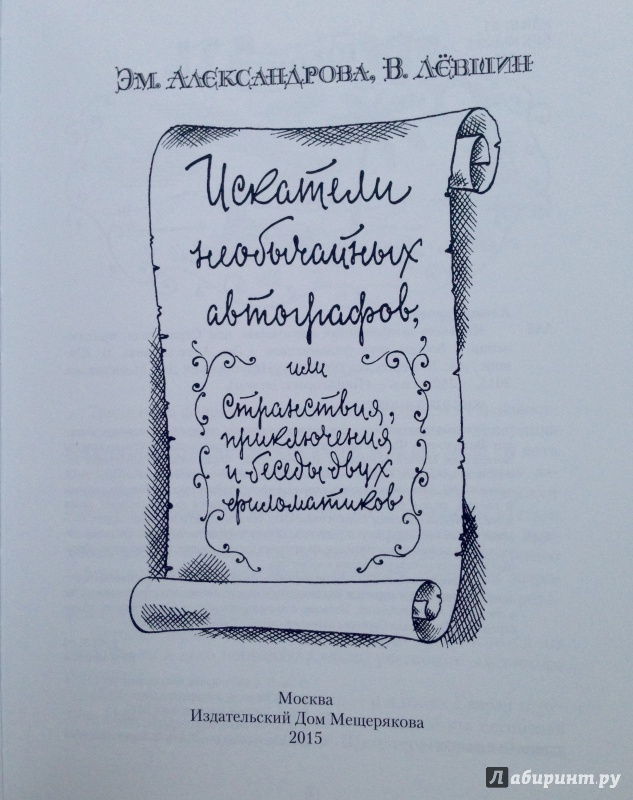 Эм. Александрова, В. Лёвшин
Искатели
необычайных
автографов,
или
странствия,
приключения
и беседы двух
филоматиков
Москва
Издательский Дом Мещерякова
2015
Лабиринт.ру